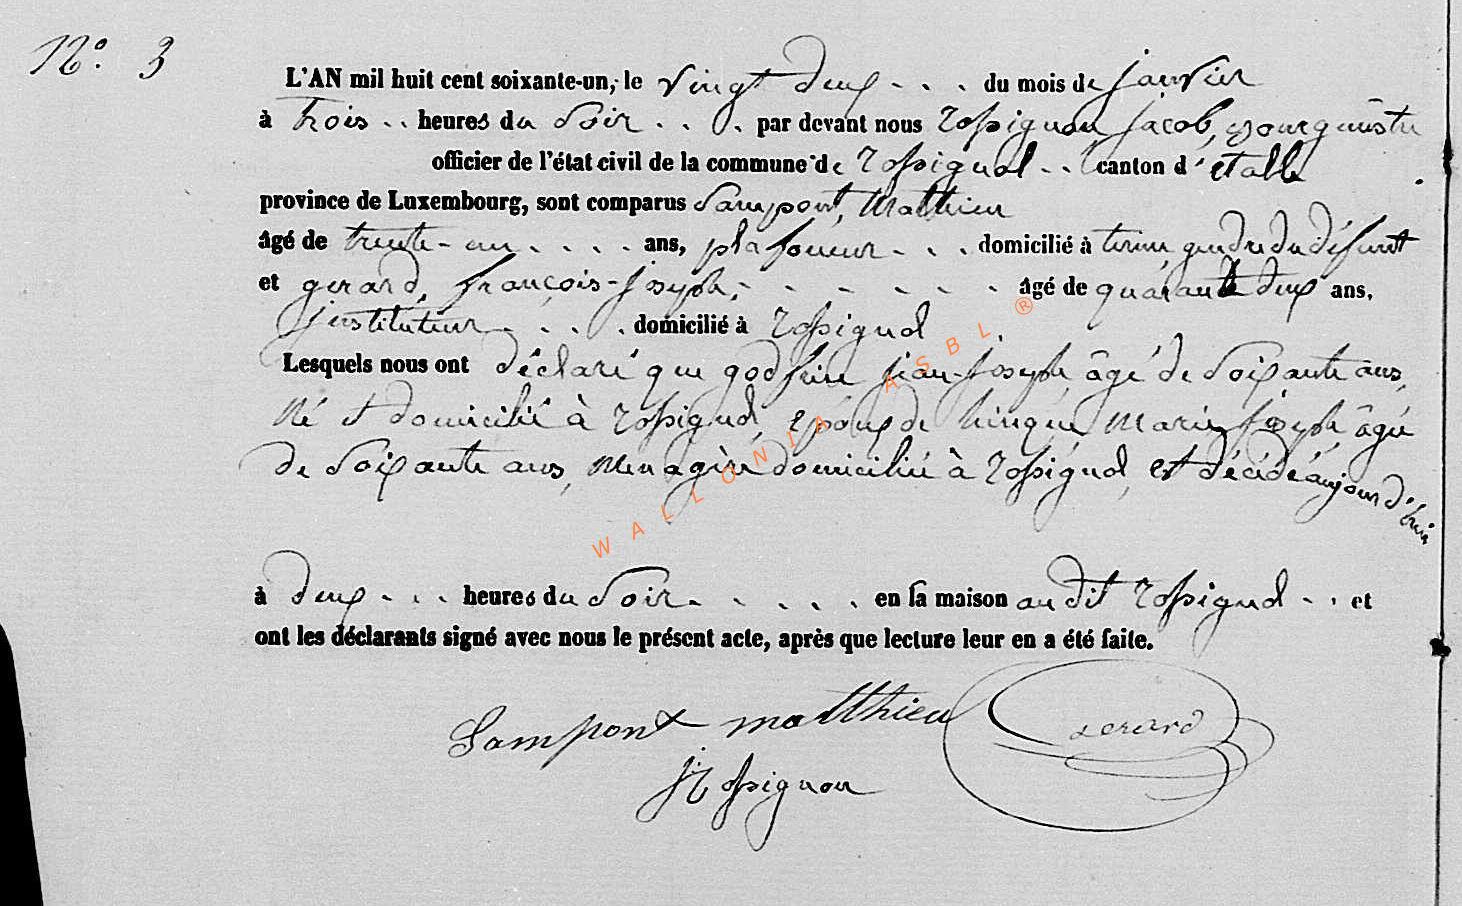 N.° 3
L'AN mil huit cent soixante-un, le vingt deux - . . du mois de janvier
à trois . . heures du soir . . . par devant nous Rossignon, jacob, Bourgumstre
officier de l'état civil de la commune de Rossignol . . canton d'étalle
province de Luxembourg, sont comparus Sampont, Mathieu
âgé de trente-un . . . . ans, plafoneur . . . domicilié à gendre du défunt
et gerard, françois-joseph, - - - - - - âgé de quarante deux ans,
instituteur . . . . domicilié à Rossignol
Lesquels nous ont déclaré que godfrin jean-joseph, âgé de soixante ans,
Né et domicilié à Rossignol, époux de Marie joseph, âgée
de soixante ans, Menagère domiciliée à Rossignol, est décédé aujourd'hui
à deux - . . heures du soir. - . . . . en sa maison au dit Rossignol . . et
ont les déclarants signé avec nous le présent acte, après que lecture leur en a été faite.
Sampont matthieu Gerard
J Rossignon
WALLONIA ASBL ®